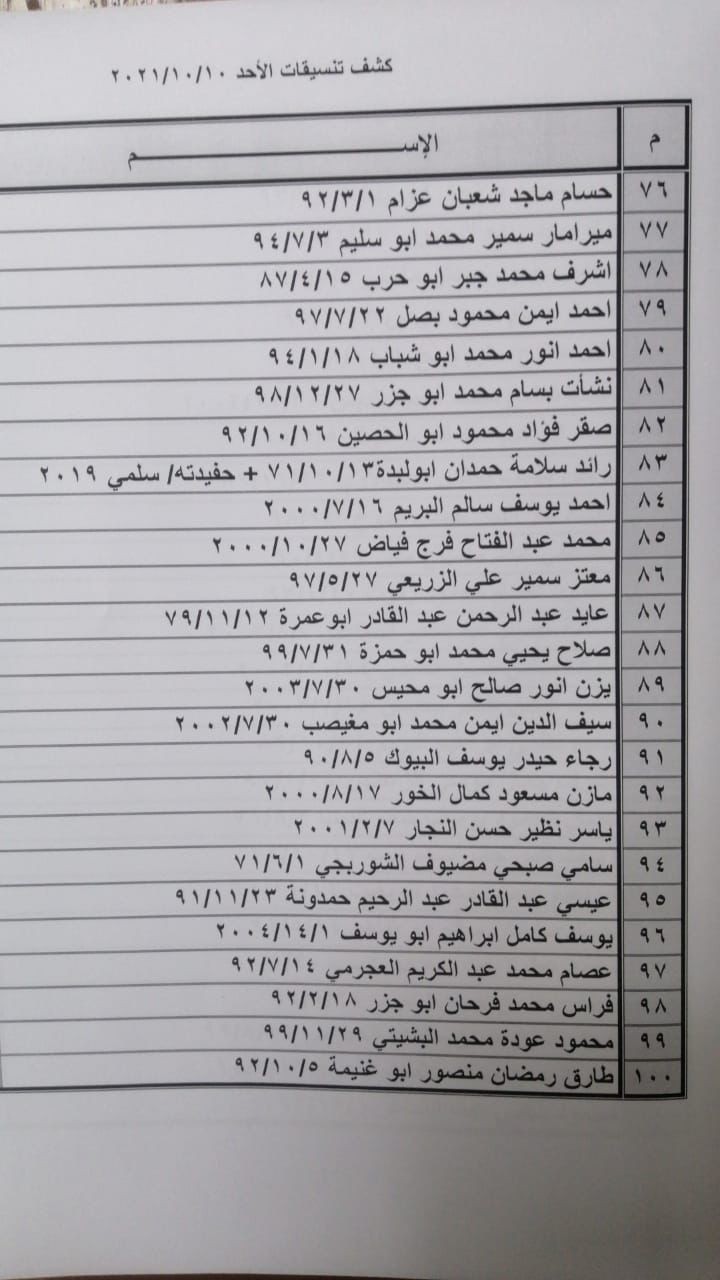 كشف تنسيقات الأحد ٢٠٢١/١٠/١٠
م الإســـــــــم
٧٦ حسام ماجد شعبان عزام ٩٢/٣/١
٧٧ ميرامار سمير محمد ابو سليم ٩٤/٧/٣
٧٨ اشرف محمد جبر ابو حرب ٨٧/٤/١٥
٧٩ احمد ايمن محمود بصل ٩٧/٧/٢٢
٨٠ احمد انور محمد ابو شباب ٩٤/١/١٨
٨١ نشأت بسام محمد ابو جزر ٩٨/١٢/٢٧
٨٢ صقر فؤاد محمود ابو الحصين ٩٢/١٠/١٦
٨٣ رائد سلامة حمدان ابولبدة٧١/١٠/١٣ + حفيدته/ سلمي ٢٠١٩
٨٤ احمد يوسف سالم البريم ٢٠٠٠/٧/١٦
٨٥ محمد عبد الفتاح فرج فياض ٢٠٠٠/١٠/٢٧
٨٦ معتز سمير علي الزريعي ٩٧/٥/٢٧
٨٧ عايد عبد الرحمن عبد القادر ابوعمرة ٧٩/١١/١٢
٨٨ صلاح يحيي محمد ابو حمزة ٩٩/٧/٣١
٨٩ يزن انور صالح ابو محيس ٢٠٠٣/٧/٣٠
٩٠ سيف الدين ايمن محمد ابو مغيصب ٢٠٠٢/٧/٣٠
٩١ رجاء حيدر يوسف البيوك ٩٠/٨/٥
٩٢ مازن مسعود كمال الخور ٢٠٠٠/٨/١٧
٩٣ ياسر نظير حسن النجار ٢٠٠١/٢/٧
٩٤ سامي صبحي مضيوف الشوربجي ٧١/٦/١
٩٥ عيسي عبد القادر عبد الرحيم حمدونة ٩١/١١/٢٣
٩٦ يوسف كامل ابراهيم ابو يوسف ٢٠٠٤/١٤/١
٩٧ عصام محمد عبد الكريم العجرمي ٩٢/٧/١٤
٩٨ فراس محمد فرحان ابو جزر ٩٢/٢/١٨
٩٩ محمود عودة محمد البشيتي ٩٩/١١/٢٩
١٠٠ طارق رمضان منصور ابو غنيمة ٩٢/١٠/٥